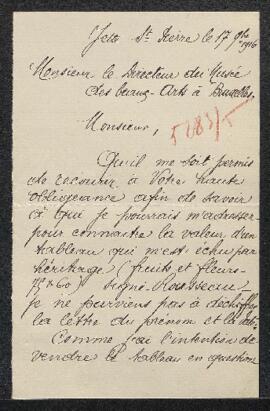 Jette St Pierre le 17 9bre 1916
Monsieur le Directeur du Musée
des beaux-Arts à Bruxelles.
5283/5
Monsieur,
Qu'il me soit permis
de recourir à Votre haute
obligeance afin de savoir
à qui je pourrais m'adresser
pour connaître la valeur d'un
tableau qui m'est échu par
héritage (fruits et fleurs
x 60) signé Rousseau
je ne parviens pas à déchiffrer
la lettre du prénom et la date.
Comme j'ai l'intention de
vendre le tableau en question